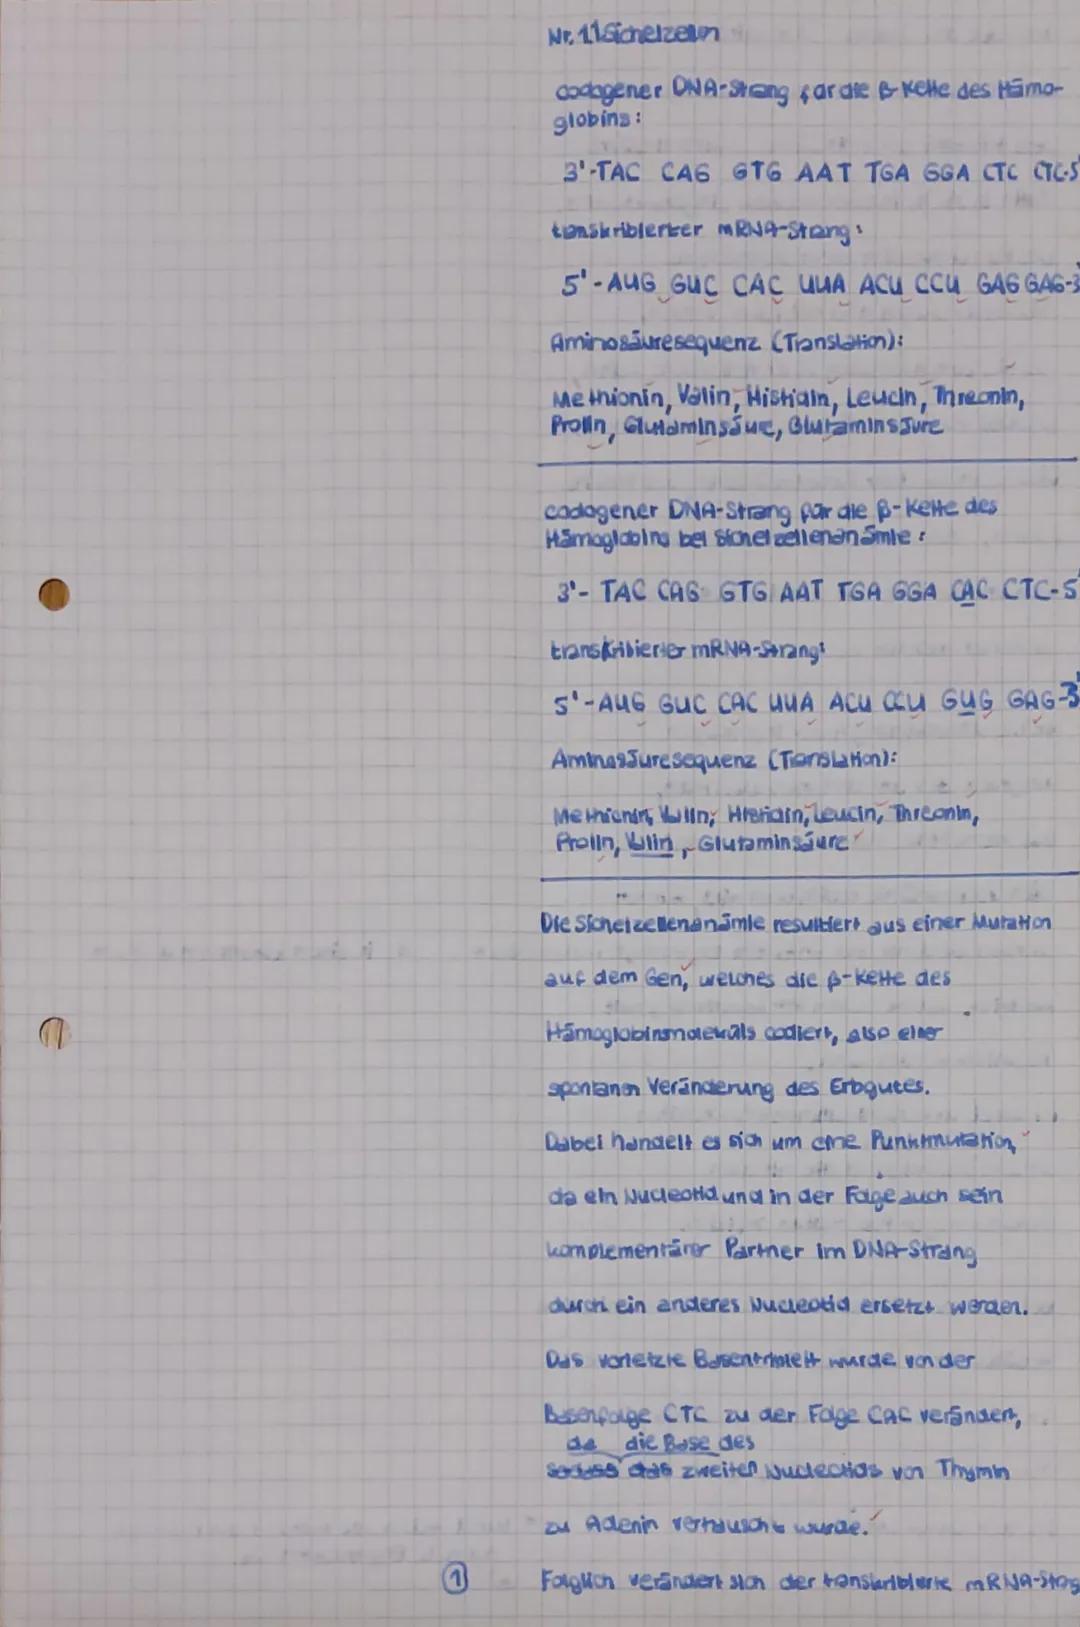 Nr. 1 Sichelzellen
codogener DNA-Strang für die β-Kette des Hämo-
globins:
3'-TAC CAG GTG AAT TGA GGA CTC CTC-5'
transkribierter mRNA-Strang:
5'-AUG GUC CAC UUA ACU CCU GAG GAG-3'
Aminosäuresequenz (Translation):
Methionin, Valin, Histidin, Leucin, Threonin,
Prolin, Glutaminsäure, Glutaminsäure
codogener DNA-Strang für die β-Kette des
Hämoglobins bei Sichelzellenanämie:
3'- TAC CAG GTG AAT TGA GGA CAC CTC-5'
transkribierter mRNA-Strang:
5'-AUG GUC CAC UUA ACU CCU GUG GAG-3'
Aminosäuresequenz (Translation):
Methionin, Valin, Histidin, Leucin, Threonin,
Prolin, Valin, Glutaminsäure
Die Sichelzellenanämie resultiert aus einer Mutation
auf dem Gen, welches die β-Kette des
Hämoglobinmoleküls codiert, also einer
spontanen Veränderung des Erbgutes.
Dabei handelt es sich um eine Punktmutation,
da ein Nucleotid und in der Folge auch sein
komplementärer Partner im DNA-Strang
durch ein anderes Nucleotid ersetzt werden.
Das vorletzte Basentriplett wurde von der
Basenfolge CTC zu der Folge CAC verändert,
da die Base des
zweiten Nucleotids von Thymin
zu Adenin vertauscht wurde.
1 Folglich verändert sich der transkribierte mRNA-Strang